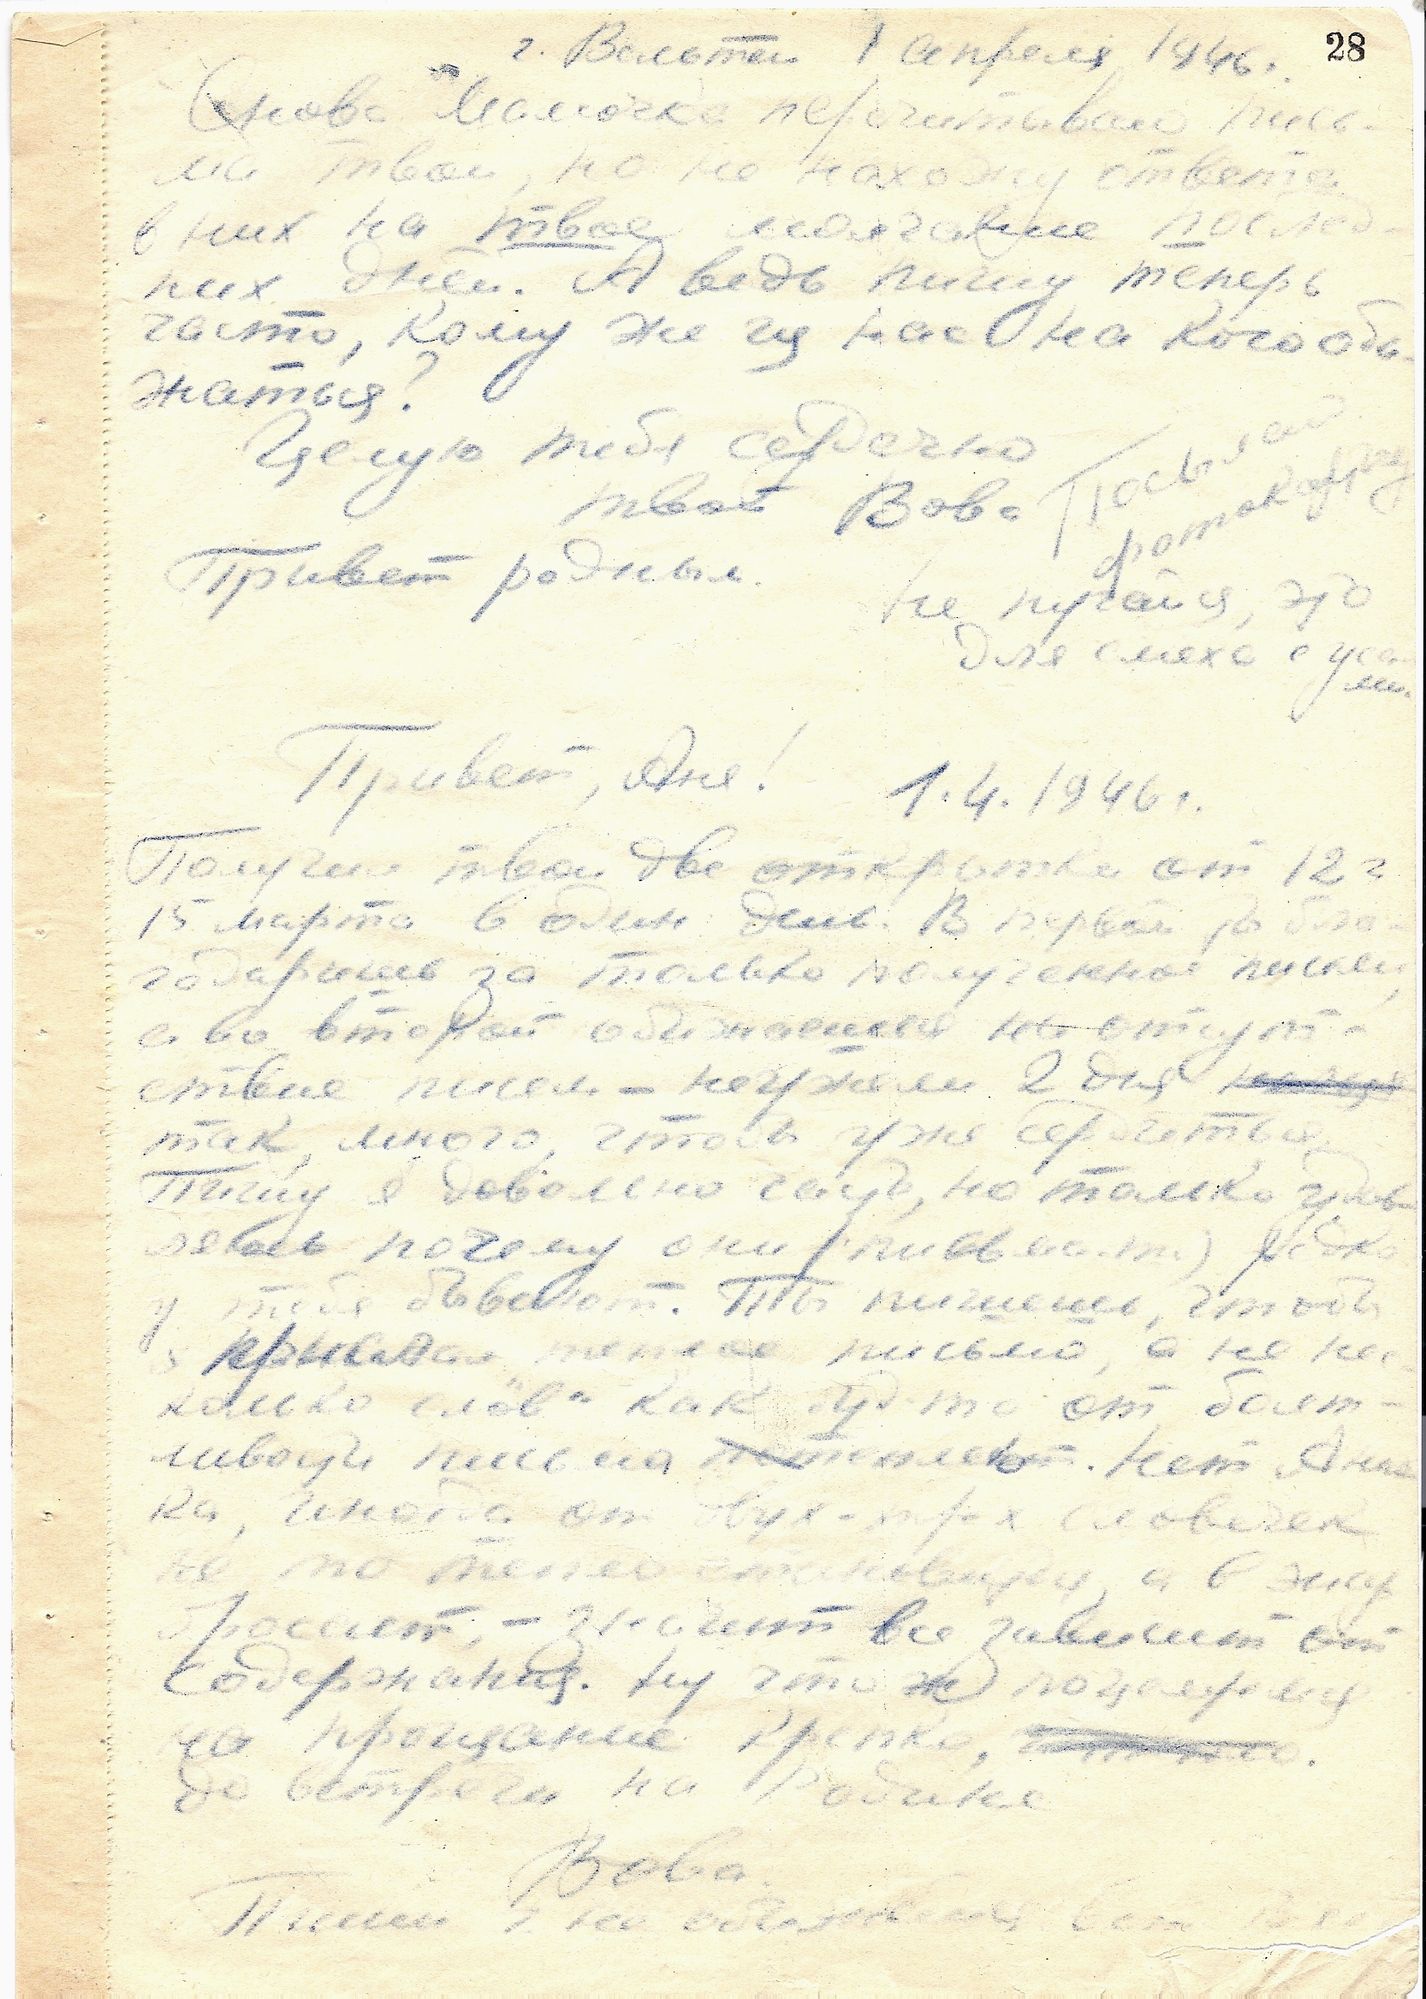 28
г. Вельтен 1 апреля 1946г.
Снова Мамочка перечитываю пись-
ма твои, но не нахожу ответа
в них на твое молчание послед-
них дней. А ведь пишу теперь
часто, кому же из нас на кого оби-
жаться?
Целую тебя сердечно
твой Вова
Посылаю
фотокарточку
Привет родным.
Не пугайся, это
для смеха с уса-
ми.
Привет, Аня!
1.4.1946г.
Получил твои две открытки от 12 и
15 марта в один день. В первой ты бла-
годаришь за только полученное письмо,
а во второй обижаешься на отсут-
ствие писем - неужели 2 дня
так много, чтобы уже сердиться.
Пишу я довольно часто, но только удив-
ляюсь почему они (письма) редко
у тебя бывают. Ты пишешь, чтобы
я теплое письмо, а не нес-
колько слов" как будто от болт-
ливости письма теплеют. Нет Анеч-
ка, иногда от двух-трех словечек
не то тепло становится, а в жар
бросает, - значит все зависит от
содержания. Ну что ж поцелуемся
на прощание крепко,
до встречи на Родине
Вова.
Пиши и не обижайся